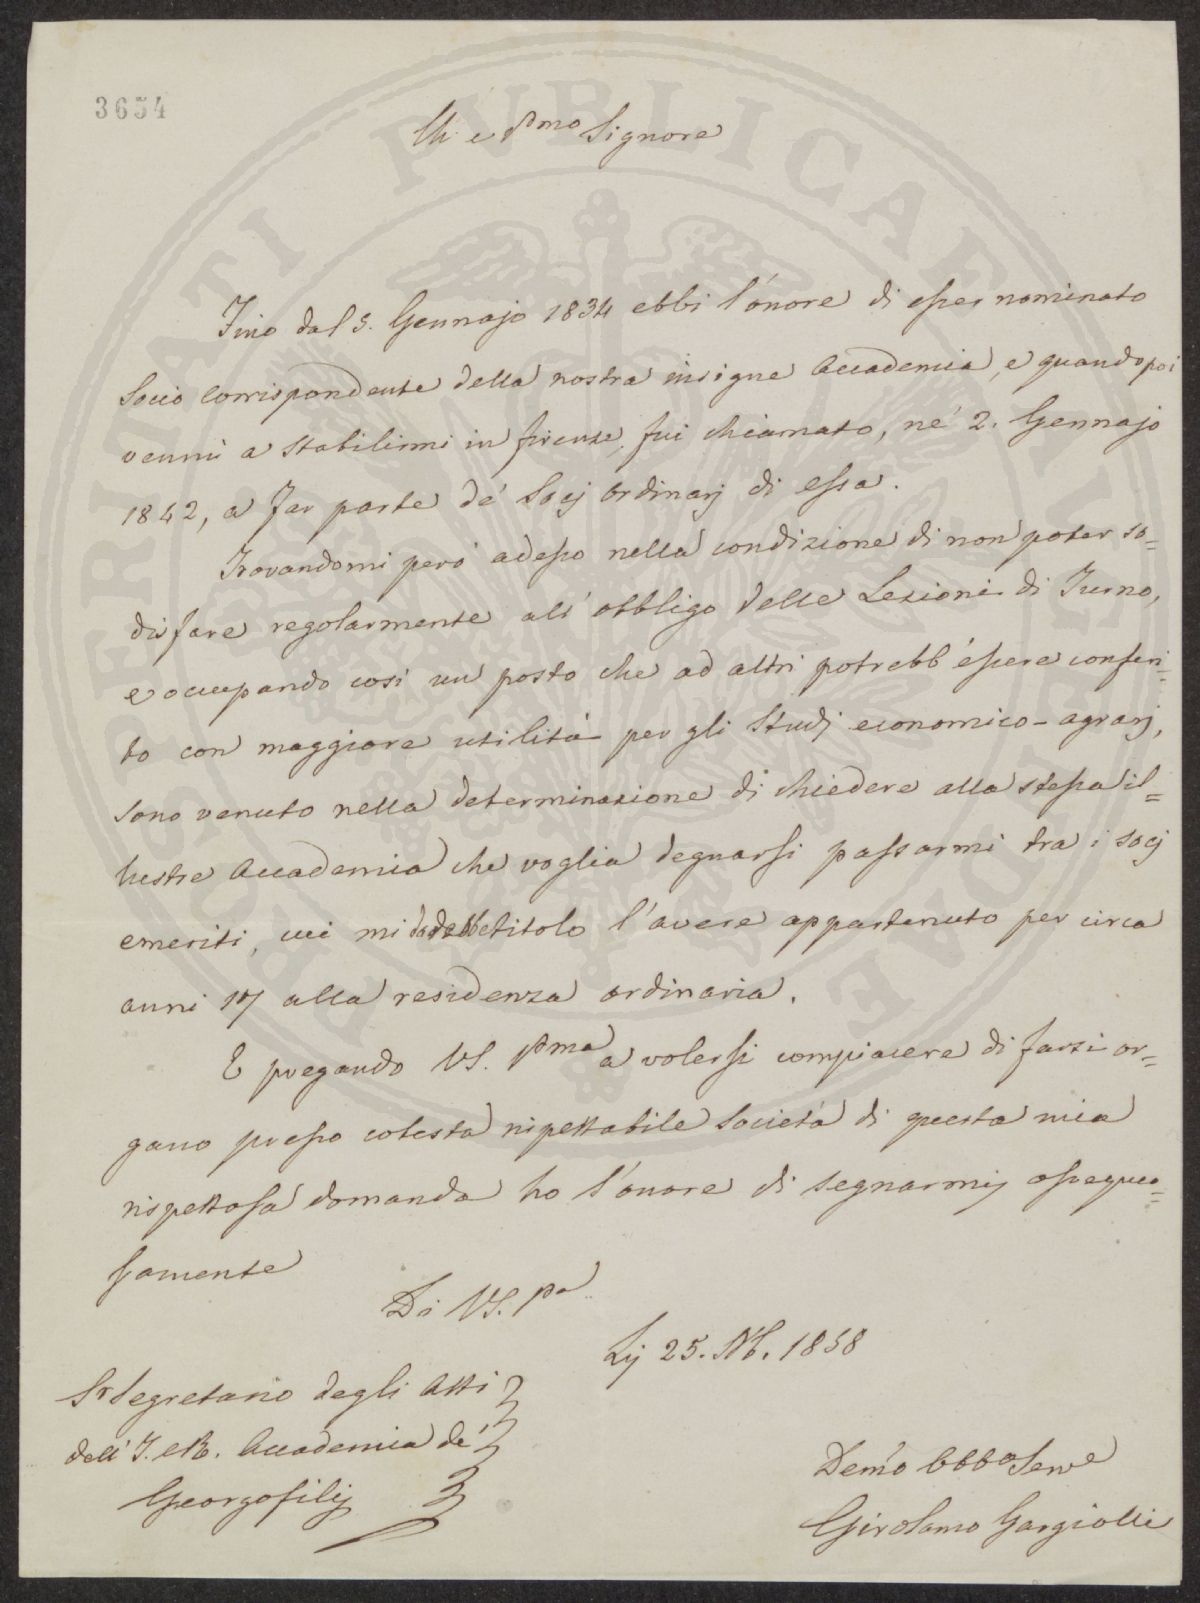 3654
Ill. e Pmo Signore
Fino dal 5. Gennajo 1834 ebbi l'onore di esser nominato
Socio Corrispondente della nostra insigne Accademia, e quando poi
venni a stabilirmi in firenze, fui chiamato, ne' 2. Gennajo
1842, a far parte de' Socj Ordinarj di essa.
Trovandomi però adesso nella condizione di non poter so=
disfare regolarmente all'obbligo delle Lezioni di Turno,
e occupando così un posto che ad altri potrebb'essere conferi=
to con maggiore utilità per gli Studj economico-agrarj,
sono venuto nella determinazione di chiedere alla stessa il=
lustre Accademia che voglia degnarsi passarmi tra i socj
emeriti, cui mi titolo l'avere appartenuto per circa
anni 17 alla residenza ordinaria.
E pregando VS. Pma a volersi compiacere di farsi or=
gano presso cotesta rispettabile Società di questa mia
rispettosa domanda ho l'onore di segnarmi ossequio=
samente
Di VS. Pa
Lij 25. 1858
Sr Segretario degli Atti
dell'I. e R. Accademia de'
Georgofilij
Demo Obbo Serve
Girolamo Gargiolli
PUBLICAE